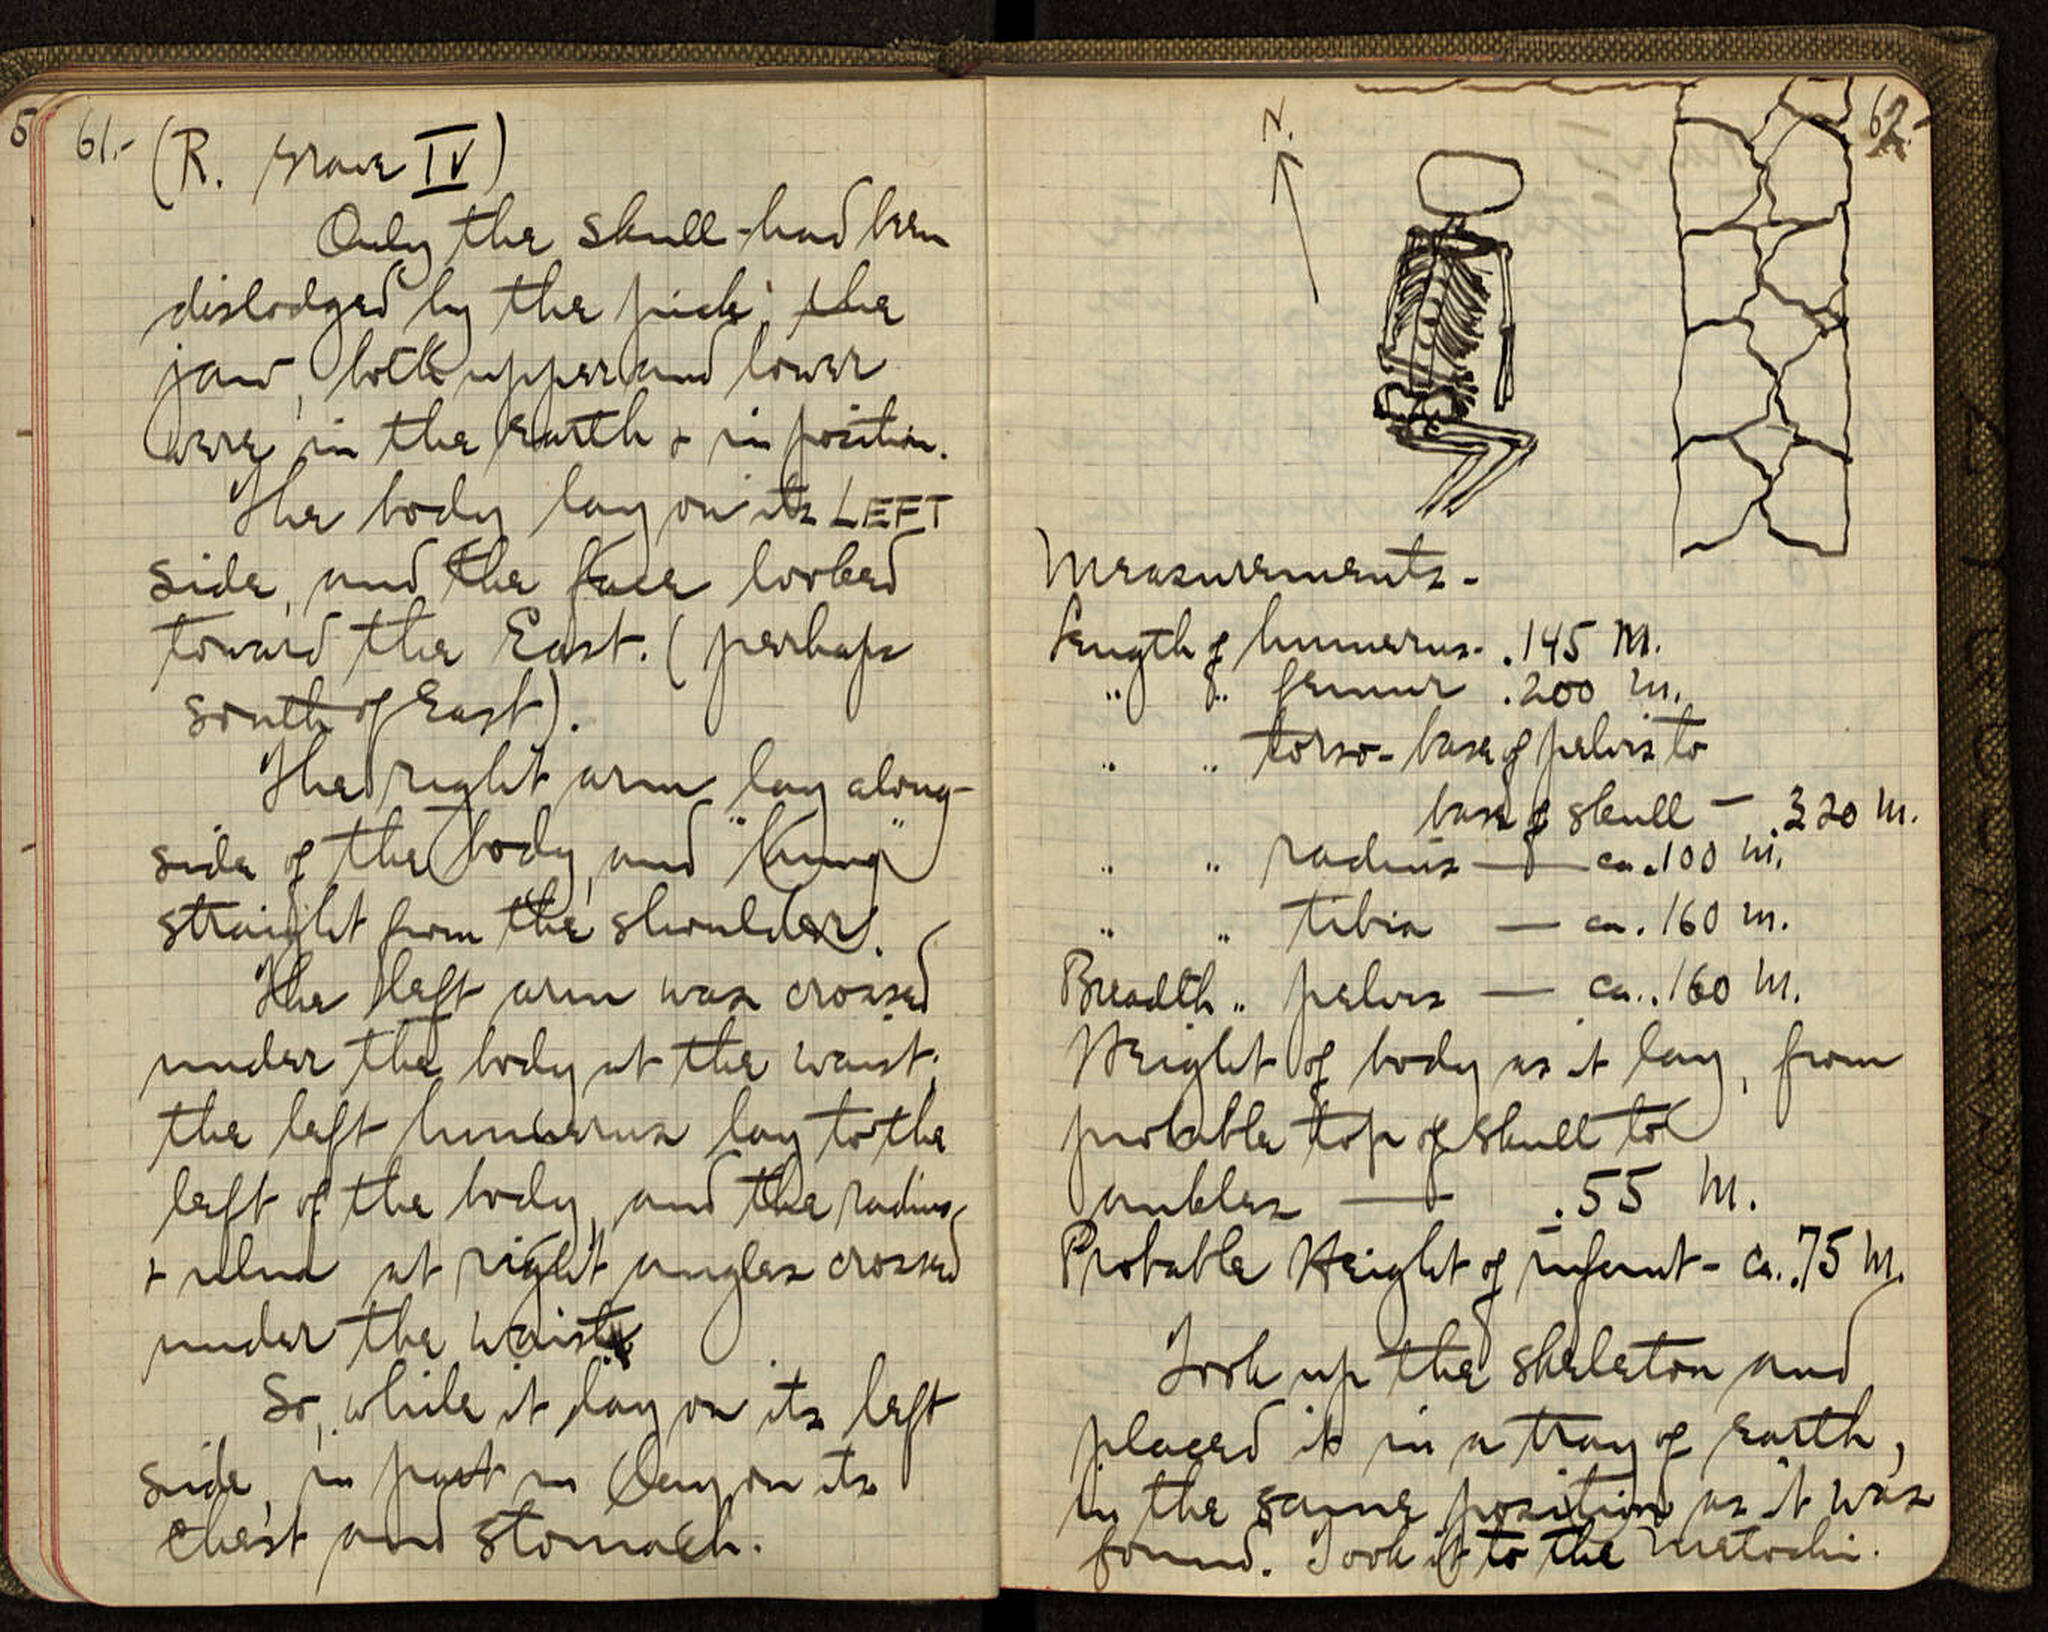 5
61.- (R. Grave IV)
Only the skull had been
dislodged by the pick; the
jaw, both upper and lower
were in the earth + in position.
The body lay on its LEFT
side, and the face looked
toward the East. (perhaps
south of East).
The right arm lay along-
side of the body, and "hung"
straight from the shoulder.
The left arm was crossed
under the body at the waist;
the left humerus lay to the
left of the body, and the radius
+ ulna at right angles crossed
under the waist.
So, while it lay on its left
side, in part it lay on its
chest and stomach.
62.-
N.
Measurements -
Length of humerus - .145 m.
" " femur .200 m.
" " torso - base of pelvis to
base of skull — .320 m.
" " radius — ca .100 m.
" " tibia — ca. .160 m.
Breadth " pelvis — ca. .160 m.
Height of body as it lay, from
probable top of skull to
ankles — .55 m.
Probable Height of infant - ca. .75 m.
Took up the skeleton and
placed it in a tray of earth,
in the same position as it was
found. Took it to the metochi.